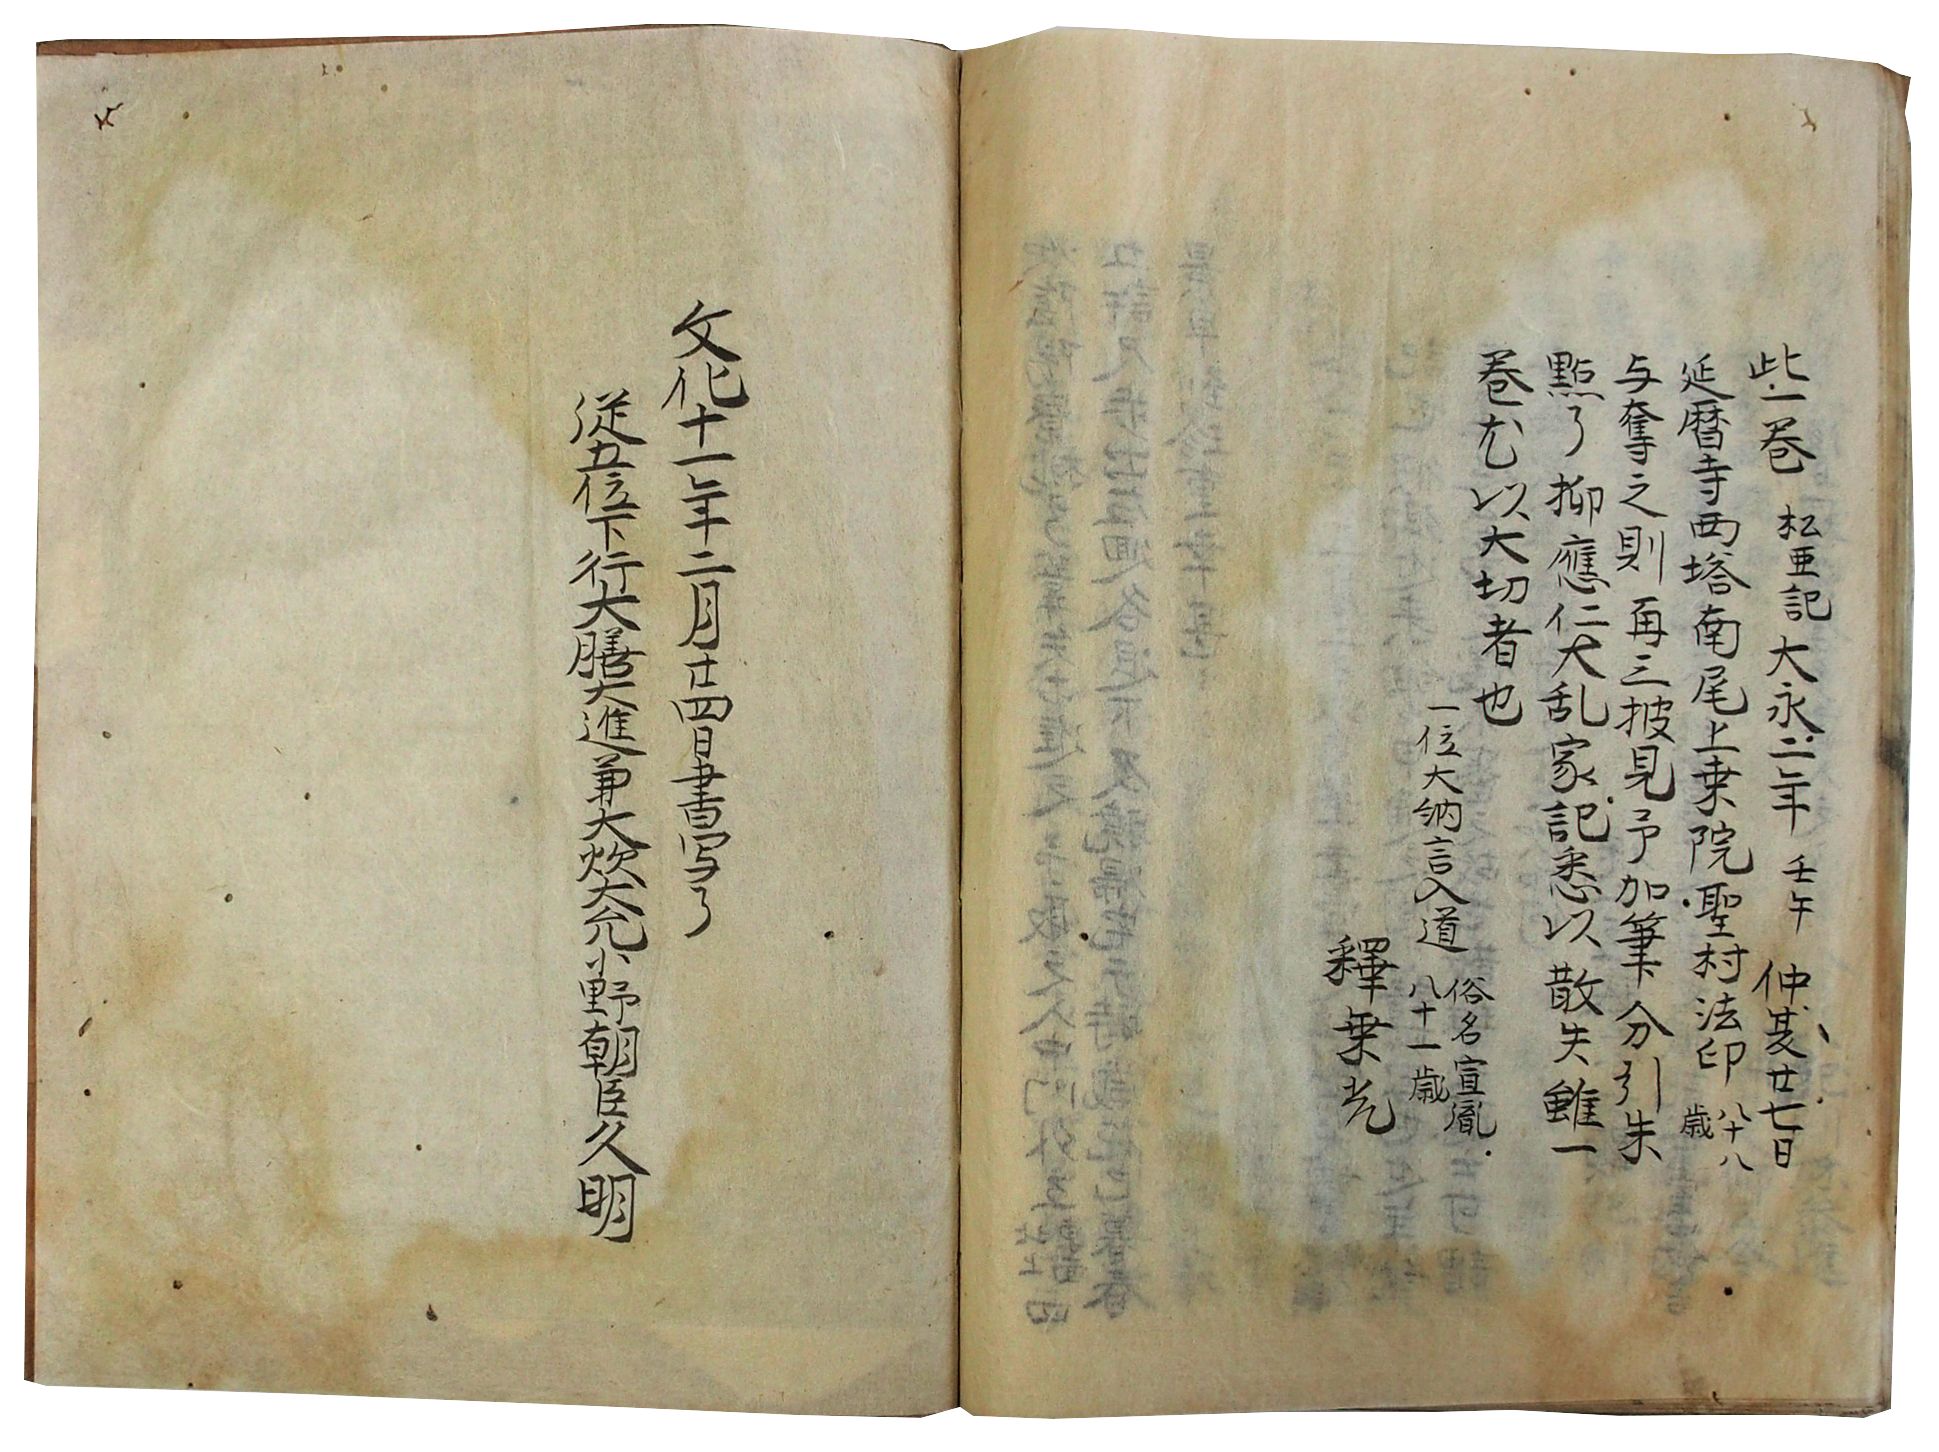 此一巻 松亜記 大永二年 壬午 仲夏廿七日
延暦寺西塔南尾上乗院聖村法印 八十八歳
与奪之則 再三披見予加筆分引朱
點了 抑應仁大乱家記悉以散失雖一
巻尤以大切者也
一位大納言入道 俗名宣胤 八十一歳
釋乗光
文化十一年二月廿四日書写了
従五位下行大膳大進兼大炊大允小野朝臣久明